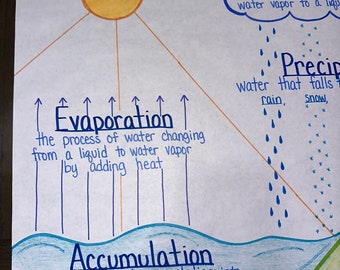 water vapor to a liqu
Precip
water that falls t
rain, snow,
Evaporation
the process of water changing
from a liquid to water vapor
by adding heat
Accumulation